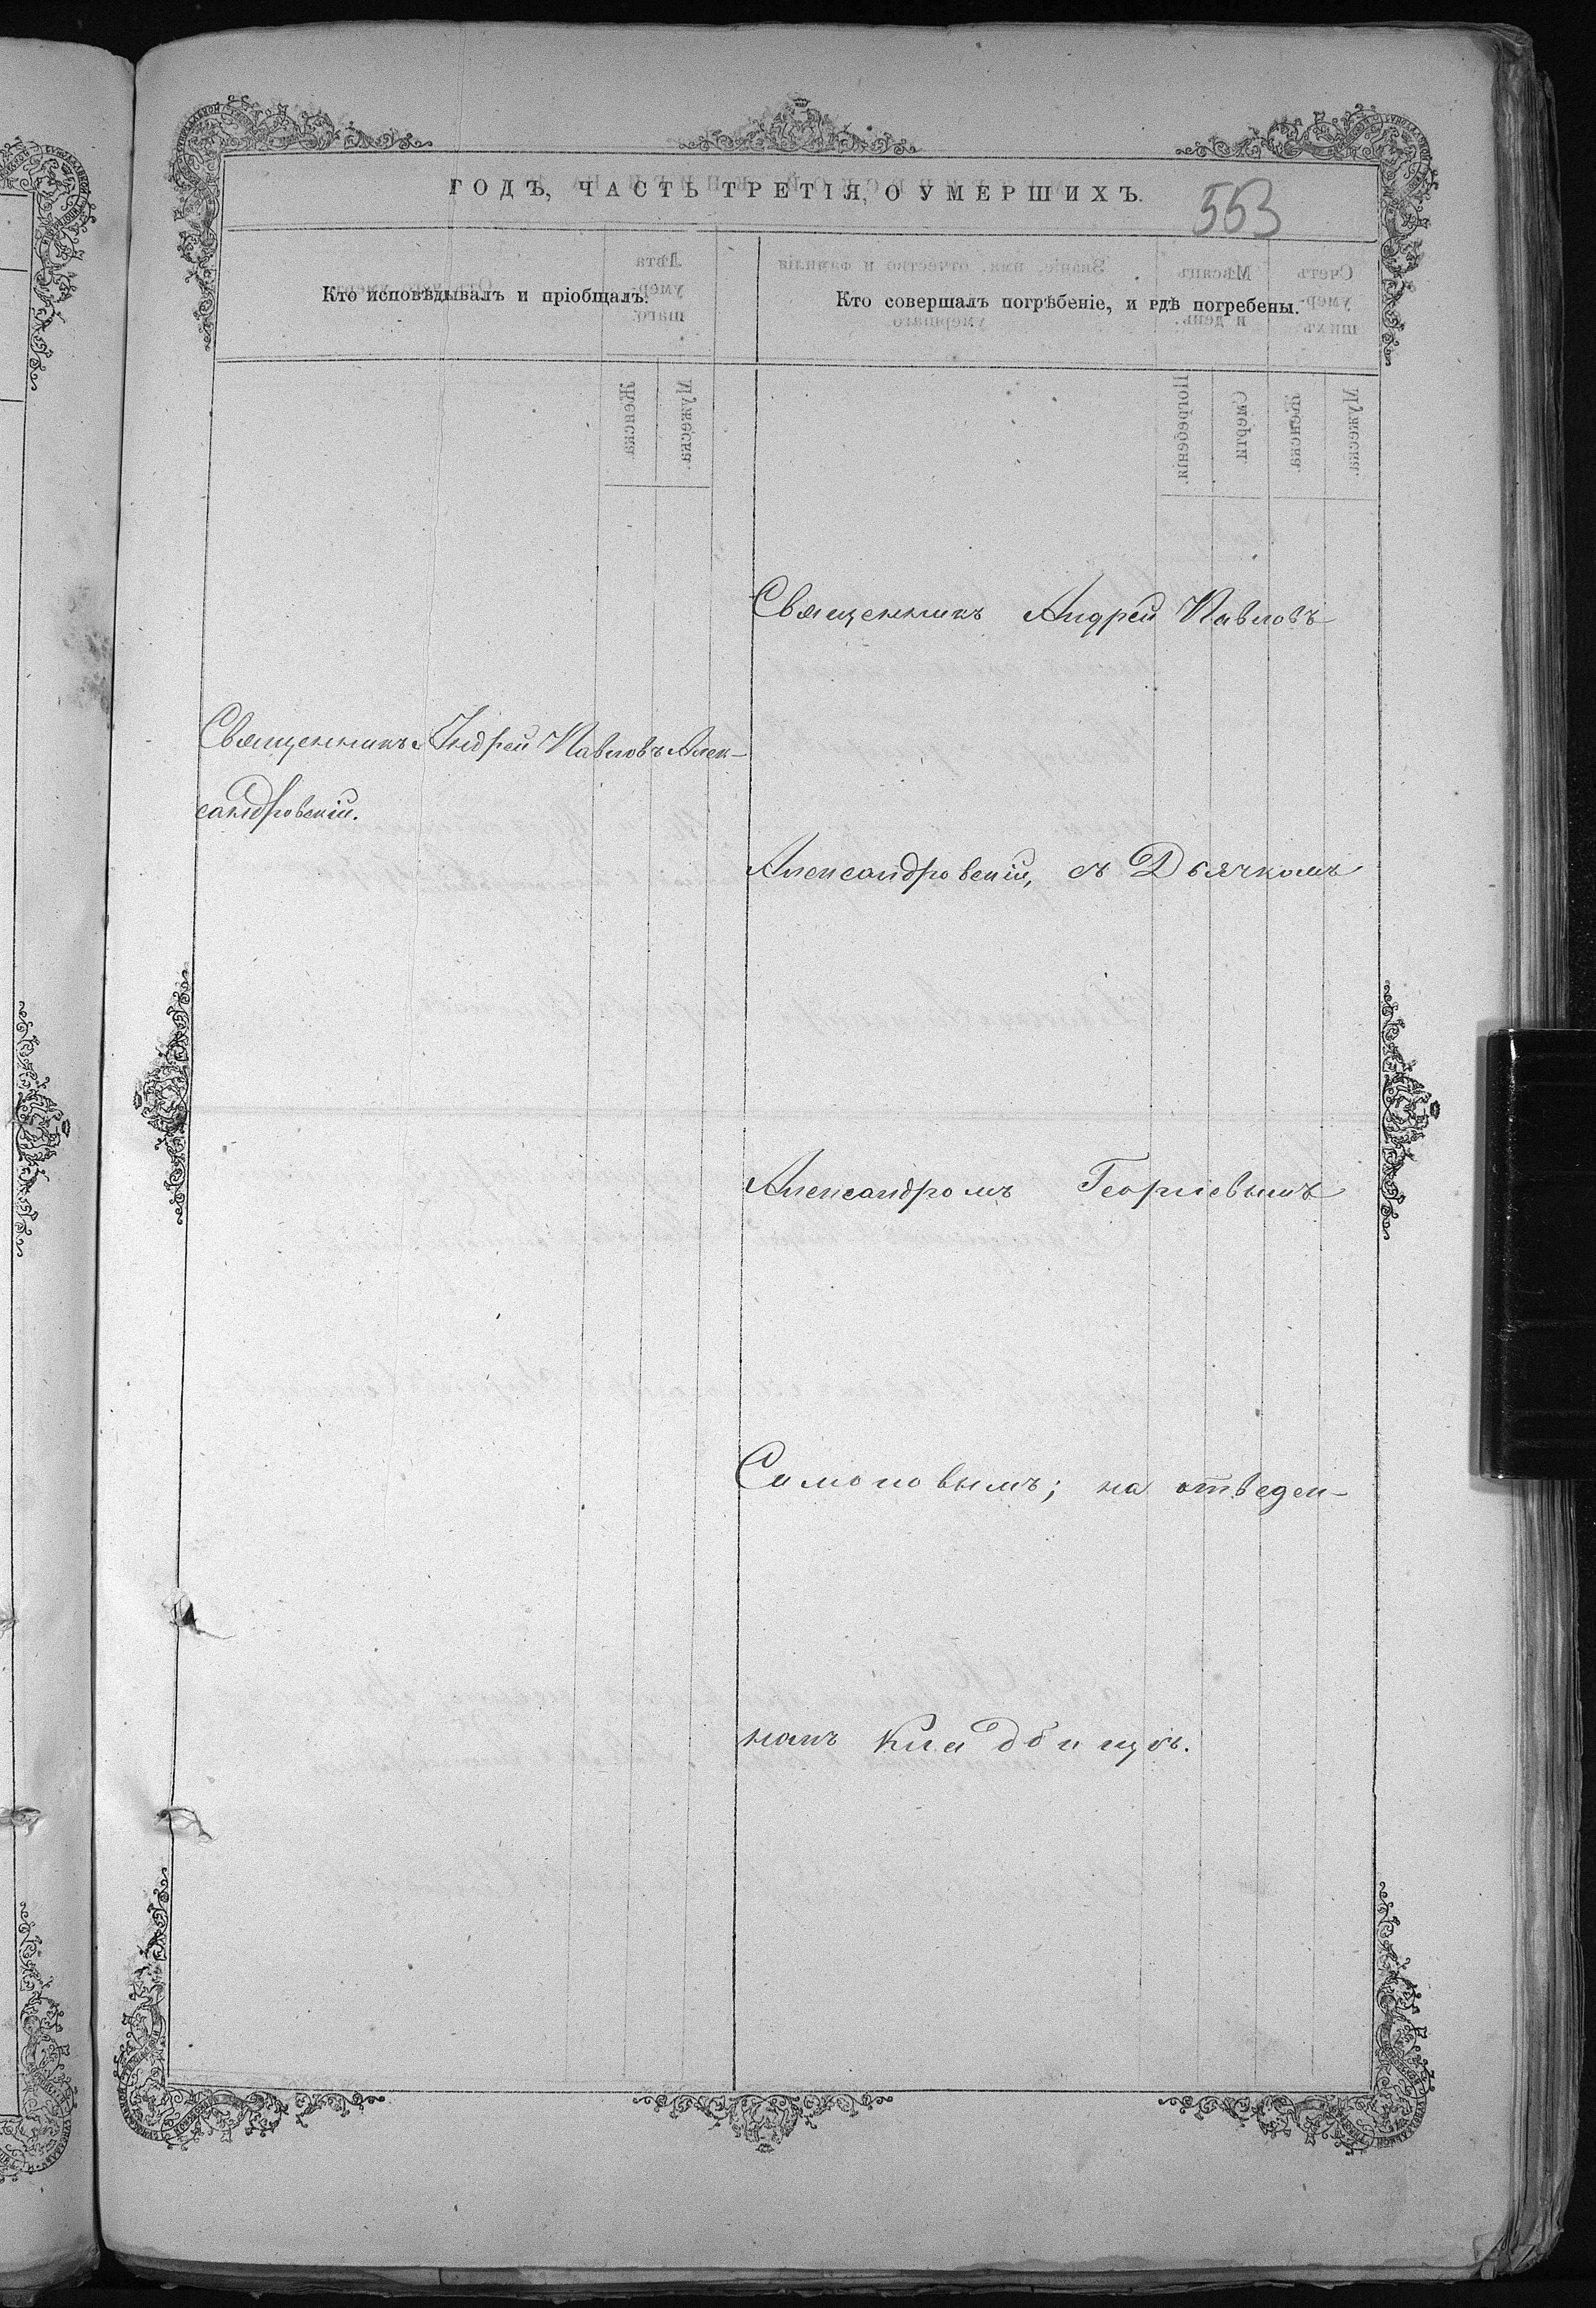 ГОДЪ, ЧАСТЬ ТРЕТІЯ, О УМЕРШИХЪ.
553
Кто исповѣдывалъ и пріобщалъ.
Кто совершалъ погрѣбеніе, и гдѣ погребены.
Священникъ Андрей Павловъ Алек-
сандровскій.
Священникъ Андрей Павловъ
Александровскій, съ Дьячкомъ
Александромъ Георгіевымъ
Симоновымъ; на отведен-
номъ кладбищѣ.